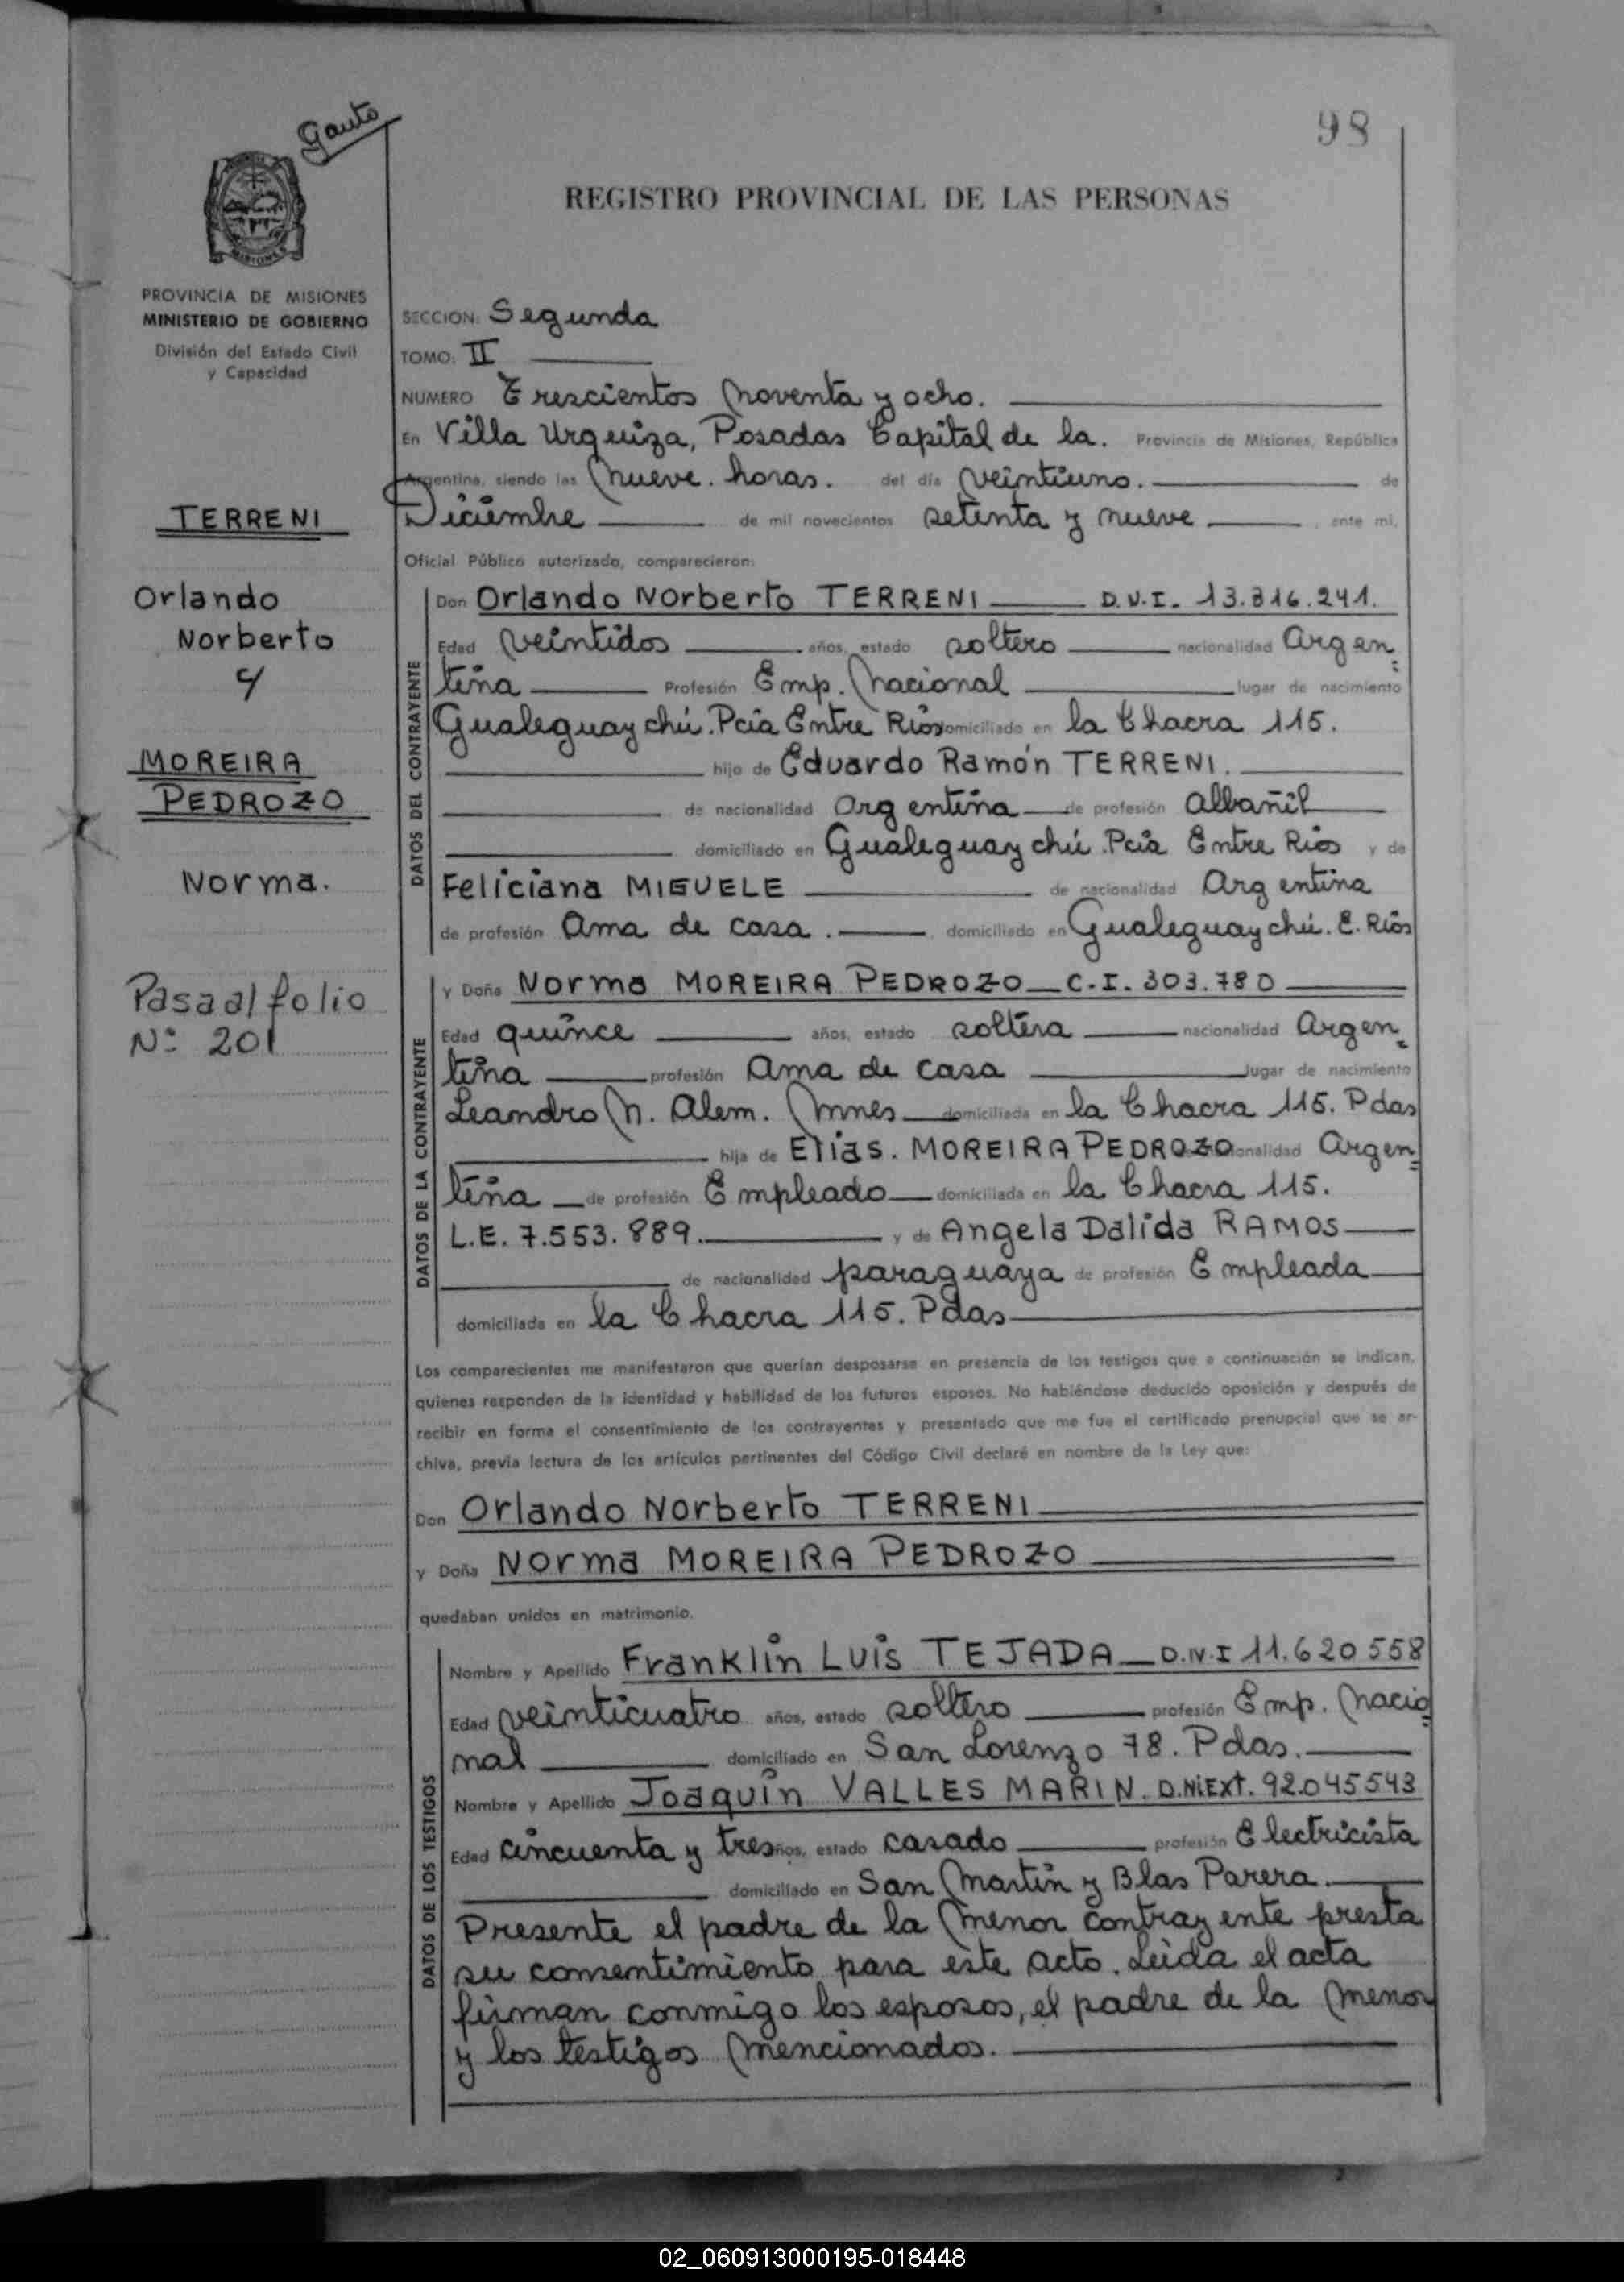 98
Gauto
REGISTRO PROVINCIAL DE LAS PERSONAS
MISIONES
PROVINCIA DE MISIONES
MINISTERIO DE GOBIERNO
División del Estado Civil
y Capacidad
TERRENI
Orlando
Norberto
c/
MOREIRA
PEDROZO
Norma.
Pasa al folio
Nº 201
SECCION: Segunda
TOMO: II
NUMERO Trescientos noventa y ocho.
En Villa Urquiza, Posadas Capital de la. Provincia de Misiones, República
Argentina, siendo las nueve. horas. del día veintiuno. de
Diciembre de mil novecientos setenta y nueve , ante mi,
Oficial Público autorizado, comparecieron:
DATOS DEL CONTRAYENTE
Don Orlando Norberto TERRENI D.N.I. 13.316.241.
Edad veintidos años, estado soltero nacionalidad Argen-
tina Profesión Emp. Nacional lugar de nacimiento
Gualeguaychú. Pcia Entre Ríos domiciliado en la Chacra 115.
hijo de Eduardo Ramón TERRENI.
de nacionalidad Argentina de profesión Albañil
domiciliado en Gualeguaychú. Pcia Entre Rios y de
Feliciana MIGUELE de nacionalidad Argentina
de profesión Ama de casa. domiciliado en Gualeguaychú. E. Ríos
DATOS DE LA CONTRAYENTE
y Doña Norma MOREIRA PEDROZO C.I. 303.780
Edad quince años, estado soltera nacionalidad Argen-
tina profesión Ama de casa lugar de nacimiento
Leandro N. Alem. Mnes domiciliada en la Chacra 115. Pdas
hija de Elias. MOREIRA PEDROZO nacionalidad Argen-
tina de profesión Empleado domiciliada en la Chacra 115.
L.E. 7.553.889. y de Angela Dalida RAMOS
de nacionalidad paraguaya de profesión Empleada
domiciliada en la Chacra 115. Pdas
Los comparecientes me manifestaron que querían desposarse en presencia de los testigos que a continuación se indican,
quienes responden de la identidad y habilidad de los futuros esposos. No habiéndose deducido oposición y después de
recibir en forma el consentimiento de los contrayentes y presentado que me fue el certificado prenupcial que se ar-
chiva, previa lectura de los artículos pertinentes del Código Civil declaré en nombre de la Ley que:
Don Orlando Norberto TERRENI
y Doña Norma MOREIRA PEDROZO
quedaban unidos en matrimonio.
DATOS DE LOS TESTIGOS
Nombre y Apellido Franklin Luis TEJADA D.N.I 11.620558
Edad veinticuatro años, estado soltero profesión Emp. Nacio-
nal domiciliado en San Lorenzo 78. Pdas.
Nombre y Apellido Joaquín VALLES MARIN. D.NiExt. 92.045543
Edad cincuenta y tres años, estado casado profesión Electricista
domiciliado en San Martín y Blas Parera.
Presente el padre de la menor contrayente presta
su consentimiento para este acto. Leida el acta
firman conmigo los esposos, el padre de la menor
y los testigos mencionados.
02_060913000195-018448